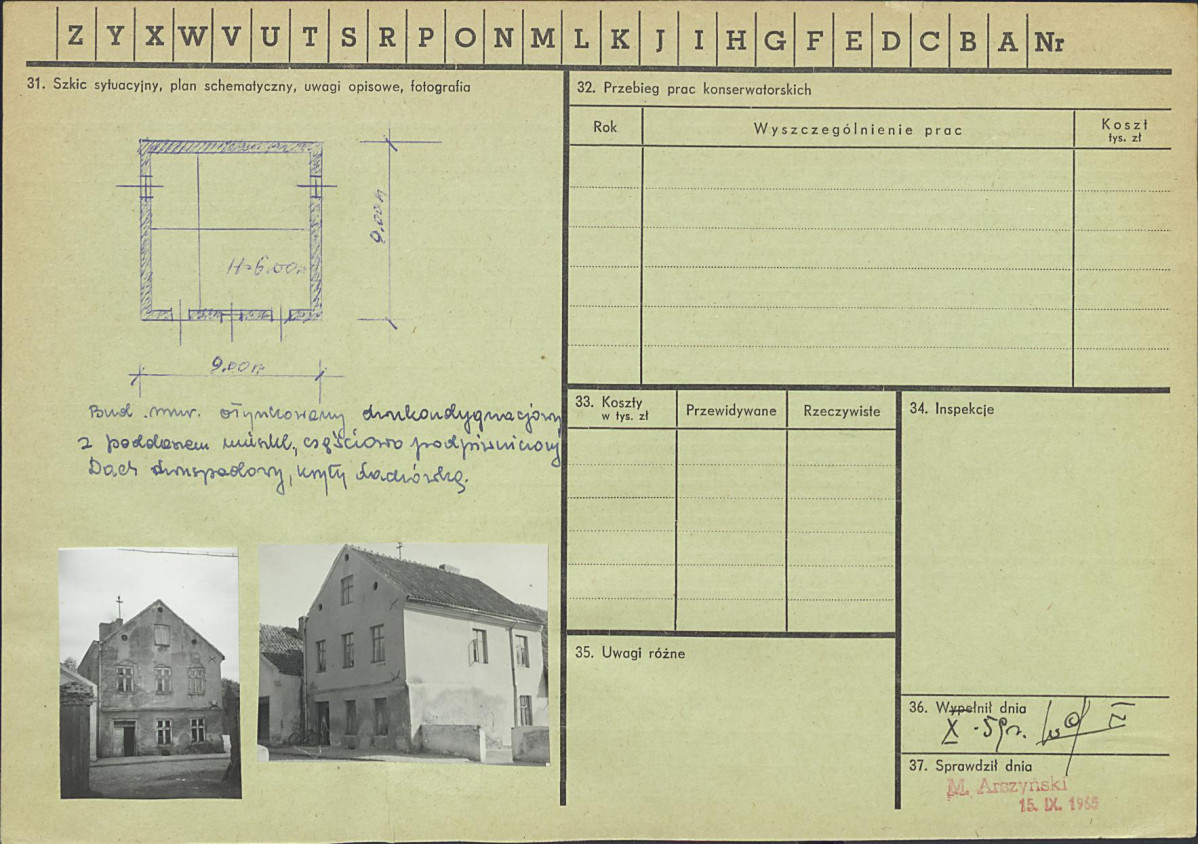 Z Y X W V U T S R P O N M L K J I H G F E D C B A Nr
31. Szkic sytuacyjny, plan schematyczny, uwagi opisowe, fotografia
H=6.00m
9.00m
9.00m
Bud. mur. otynkowany dwukondygnacjowy
z poddaszem mieszkl., częściowo podpiwniczony
Dach dwuspadowy, kryty dachówką.
32. Przebieg prac konserwatorskich
Rok
Wyszczególnienie prac
Koszt
tys. zł
33. Koszty
w tys. zł
Przewidywane
Rzeczywiste
34. Inspekcje
35. Uwagi różne
36. Wypełnił dnia
X. 59r.
37. Sprawdził dnia
M. Arszyński
15. IX. 1965